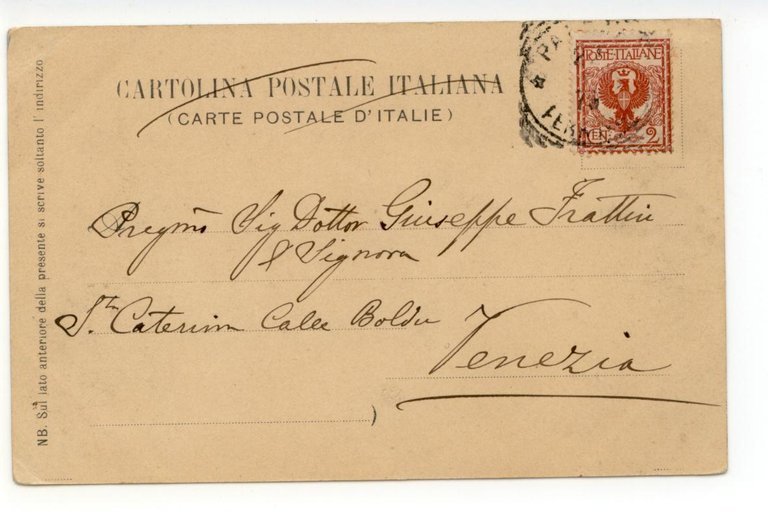 CARTOLINA POSTALE ITALIANA
(CARTE POSTALE D'ITALIE)
POSTE·ITALIANE
CEN. 2
Pregmo Sig Dottor Giuseppe Frattin
e Signora
Sta Caterina Calle Boldu
Venezia
NB. Sul lato anteriore della presente si scrive soltanto l'indirizzo